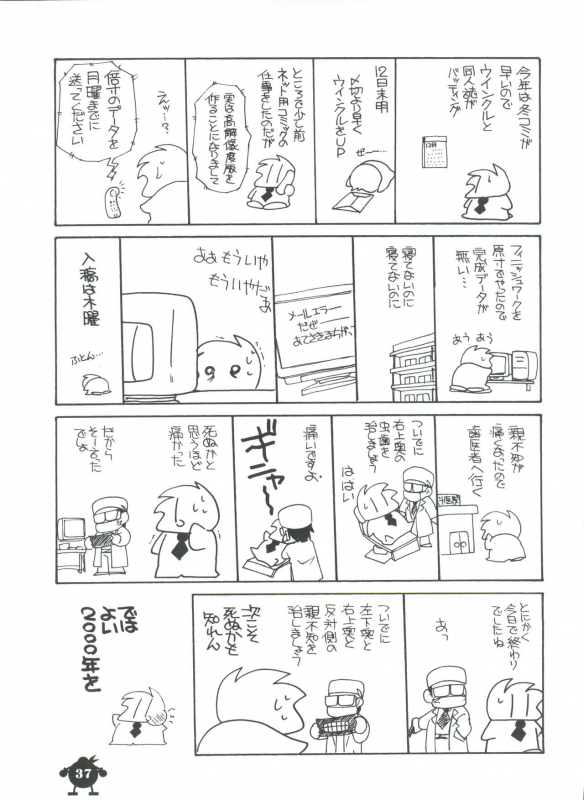 今年は冬コミが
早いので
ウインクルと
同人誌が
バッティング
12月
12日未明
〆切より早く
ウインクルをUP
ぜー…
ところが少し前
ネット用コミックの
仕事をしたのだが
実は高解像度版を
作ることになりまして
えッ…?
倍寸のデータを
月曜までに
送ってください
フィニッシュワークを
原寸でやったので
完成データが
無い…
あう
あう
寝てないのに
寝てないのに
メールエラー
だぜ
あてさきまちがい
ああもういや
もういやだよ
入稿は木曜
ふとん…
親不知が
痛くなったので
歯医者へ行く
ついでに
右上奥の
虫歯を
治しましょう
ははい
痛いですよ
ギニャー
死ぬかと
思うほど
痛かった
だから
そう言った
でしょ
とにかく
今日で終わり
でしたね
あっ
ついでに
左下奥と
右上奥と
反対側の
親不知を
治しましょう
次こそ
死ぬかも
知れん
では
よい
2000年を
37